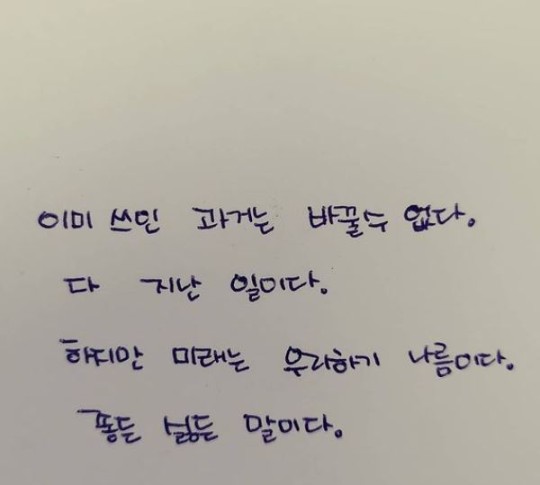 이미 쓰인 과거는 바꿀수 없다.
다 지난 일이다.
하지만 미래는 우리하기 나름이다.
좋든 싫든 말이다.